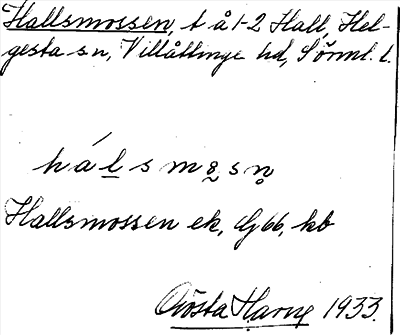 Hallsmossen, t å 1-2 Hall, Hel-
gesta sn, Villåttinge hd, Sörml. l.
hálsmo̥sn̥
Hallsmossen ek, Gj66, kb
Gösta Harne 1933.